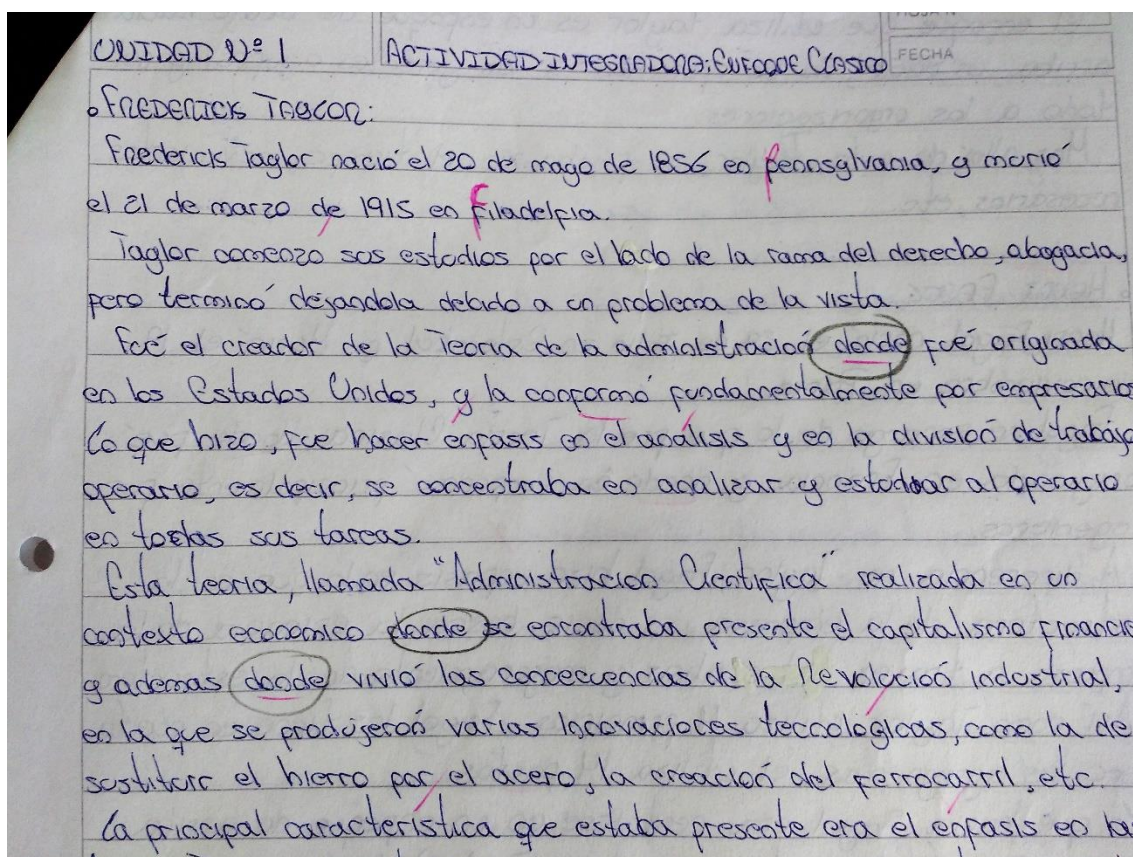 UNIDAD Nº 1 ACTIVIDAD INTEGRADORA: ENFOQUE CLASICO FECHA
• FREDERICK TAYLOR:
Frederick Taylor nació el 20 de mayo de 1856 en Pennsylvania, y murió
el 21 de marzo de 1915 en Filadelfia.
Taylor comenzo sus estudios por el lado de la rama del derecho, abogacia,
pero terminó dejandola debido a un problema de la vista.
Fué el creador de la Teoria de la administración donde fué originada
en los Estados Unidos, y la conformó fundamentalmente por empresarios
Lo que hizo, fue hacer enfasis en el análisis y en la división de trabajo
operario, es decir, se concentraba en analizar y estudiar al operario
en todas sus tareas.
Esta teoria, llamada "Administracion Cientifica" realizada en un
contexto economico donde se encontraba presente el capitalismo financie
y ademas donde vivió las concecuencias de la Revolución industrial,
en la que se produjerón varias innovaciones tecnológicas, como la de
sustituir el hierro por el acero, la creación del ferrocarril, etc.
La principal característica que estaba presente era el enfasis en la